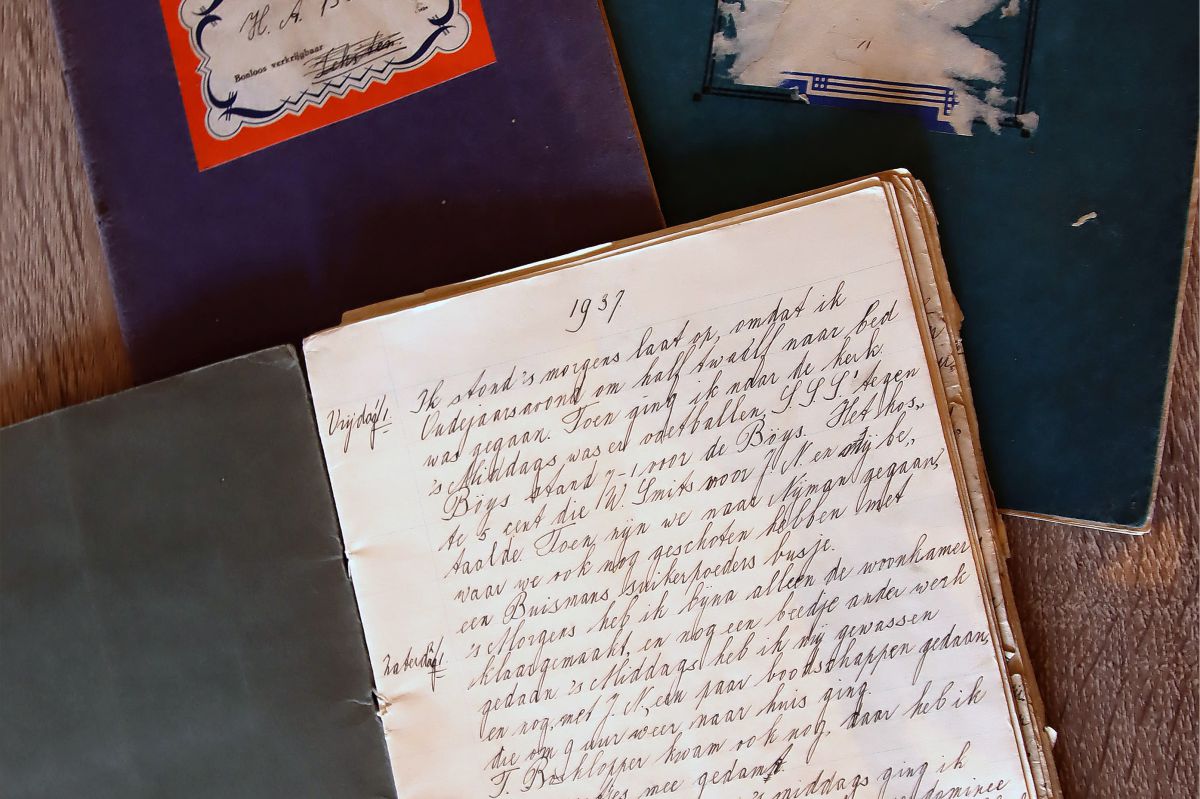 H. A.
Bonloos verkrijgbaar
1937
Vrijdag 1/1
Ik stond 's morgens laat op, omdat ik
Oudejaarsavond om half twaalf naar bed
was gegaan. Toen ging ik naar de kerk.
's Middags was er voetballen, S.S.S. tegen
Böys stand 7-1 voor de Böys. Het kos„
te 5 cent die W. Smits voor J. N. en mij be„
taalde. Toen zijn we naar Nijman gegaan,
waar we ook nog geschoten hebben met
een Buismans suikerpoeders busje.
Zaterdag
's Morgens heb ik bijna alleen de woonkamer
klaargemaakt, en nog een beedje ander werk
gedaan 's Middags heb ik mij gewassen
en nog, met J. N, een paar boodschappen gedaan,
die om 9 uur weer naar huis ging.
T. Bosklopper kwam ook nog, daar heb ik
mee gedamt.
's middags ging ik
dominee